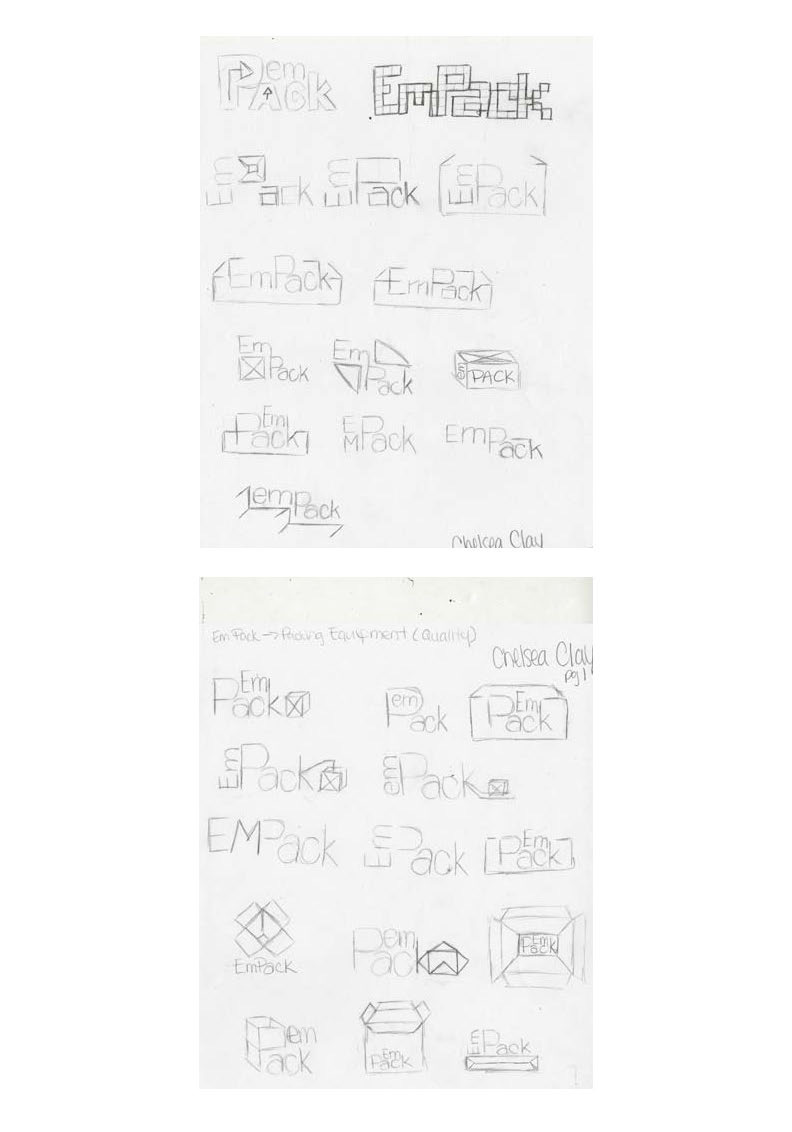 Pem
PACK
EmPack
Em
Pack
Em
Pack
Em
Pack
EmPack
EmPack
Em
Pack
Em
Pack
Em
PACK
Em
Pack
EM
Pack
EmPack
emPack
Chelsea Clay
EmPack → Packing Equipment (Quality)
Chelsea Clay
pg 1
Em
Pack
em
Pack
Em
Pack
Em
Pack
em
Pack
EMPack
Em
Pack
Em
Pack
EmPack
em
Pack
Em
Pack
Pem
ack
Em
Pack
Em
Pack